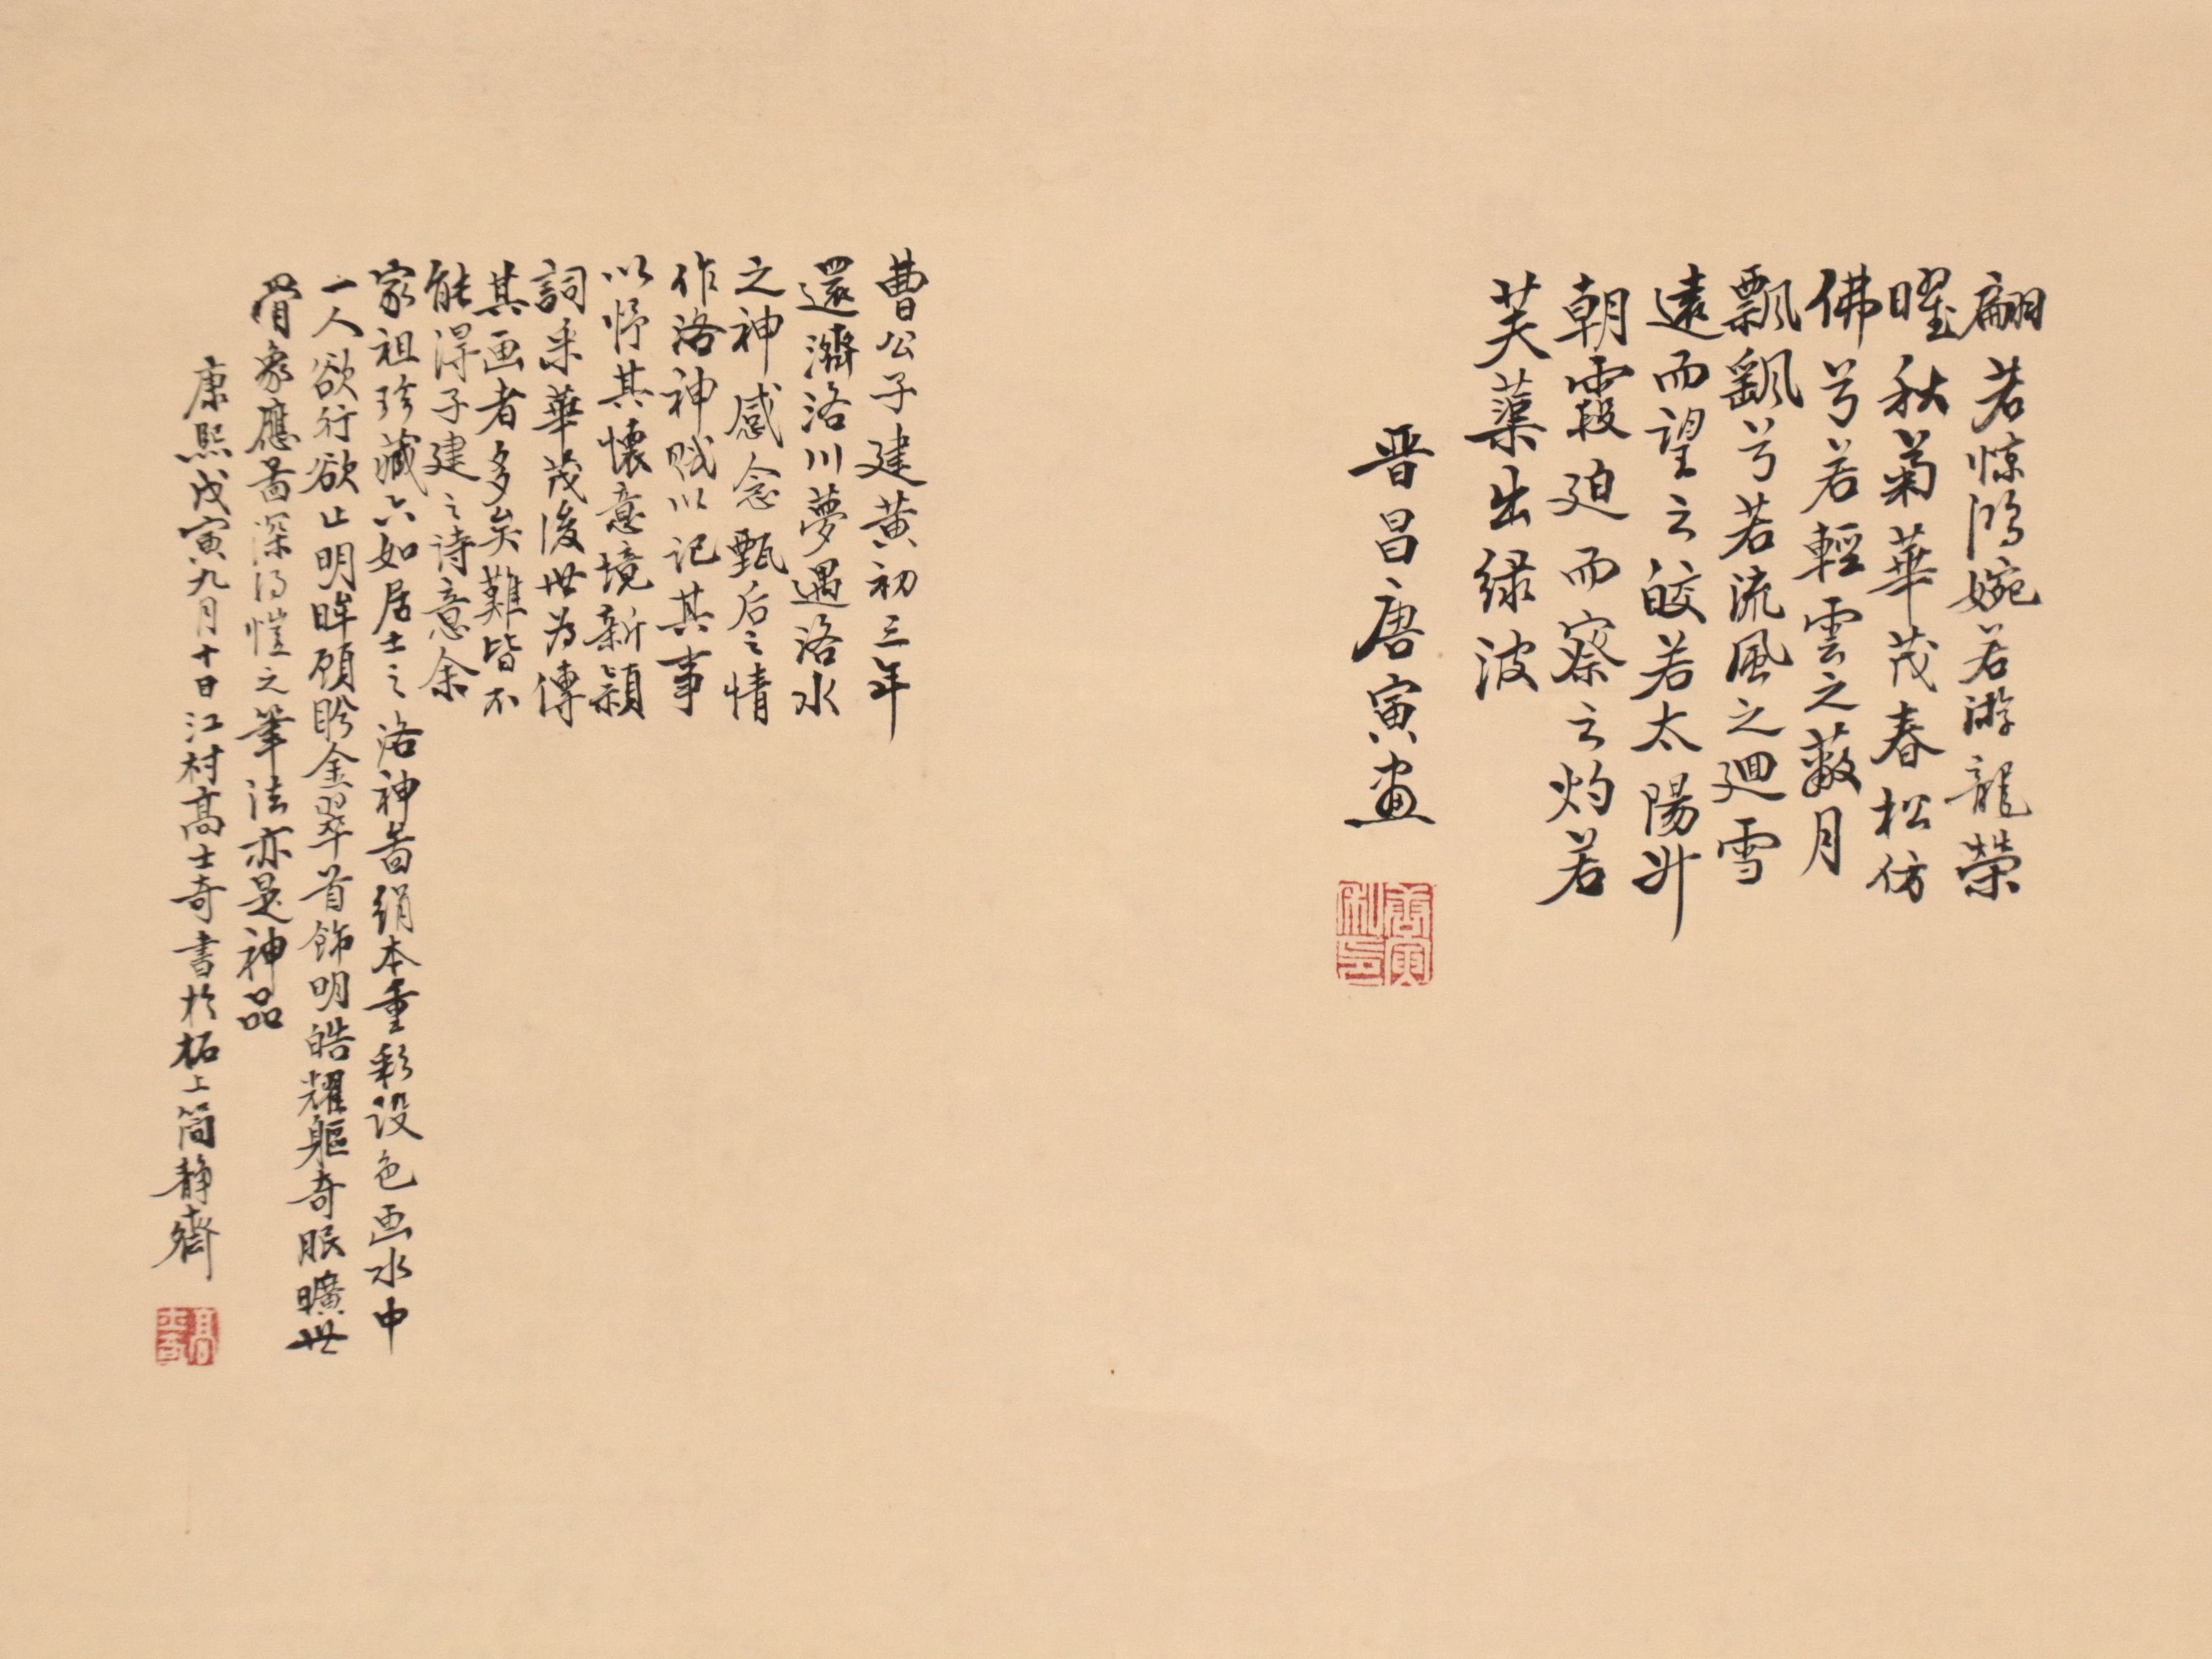 翩若惊鸿婉若游龍榮
曜秋菊華茂春松仿
佛兮若輕雲之蔽月
飄飖兮若流風之迴雪
遠而望之皎若太陽升
朝霞迫而察之灼若
芙蕖出绿波
晋昌唐寅画
唐寅私印
曹公子建黄初三年
還濟洛川夢遇洛水
之神感念甄后之情
作洛神赋以记其事
以抒其懷意境新穎
詞采華茂後世为傳
其画者多矣難皆不
能得子建之诗意余
家祖珍藏六如居士之洛神啚绢本重彩设色画水中
一人欲行欲止明眸顾盼金翠首飾明皓耀軀奇服曠世
骨象應啚深得愷之筆法亦是神品
康熙戊寅九月十日江村高士奇書於柘上简静齋
高士奇